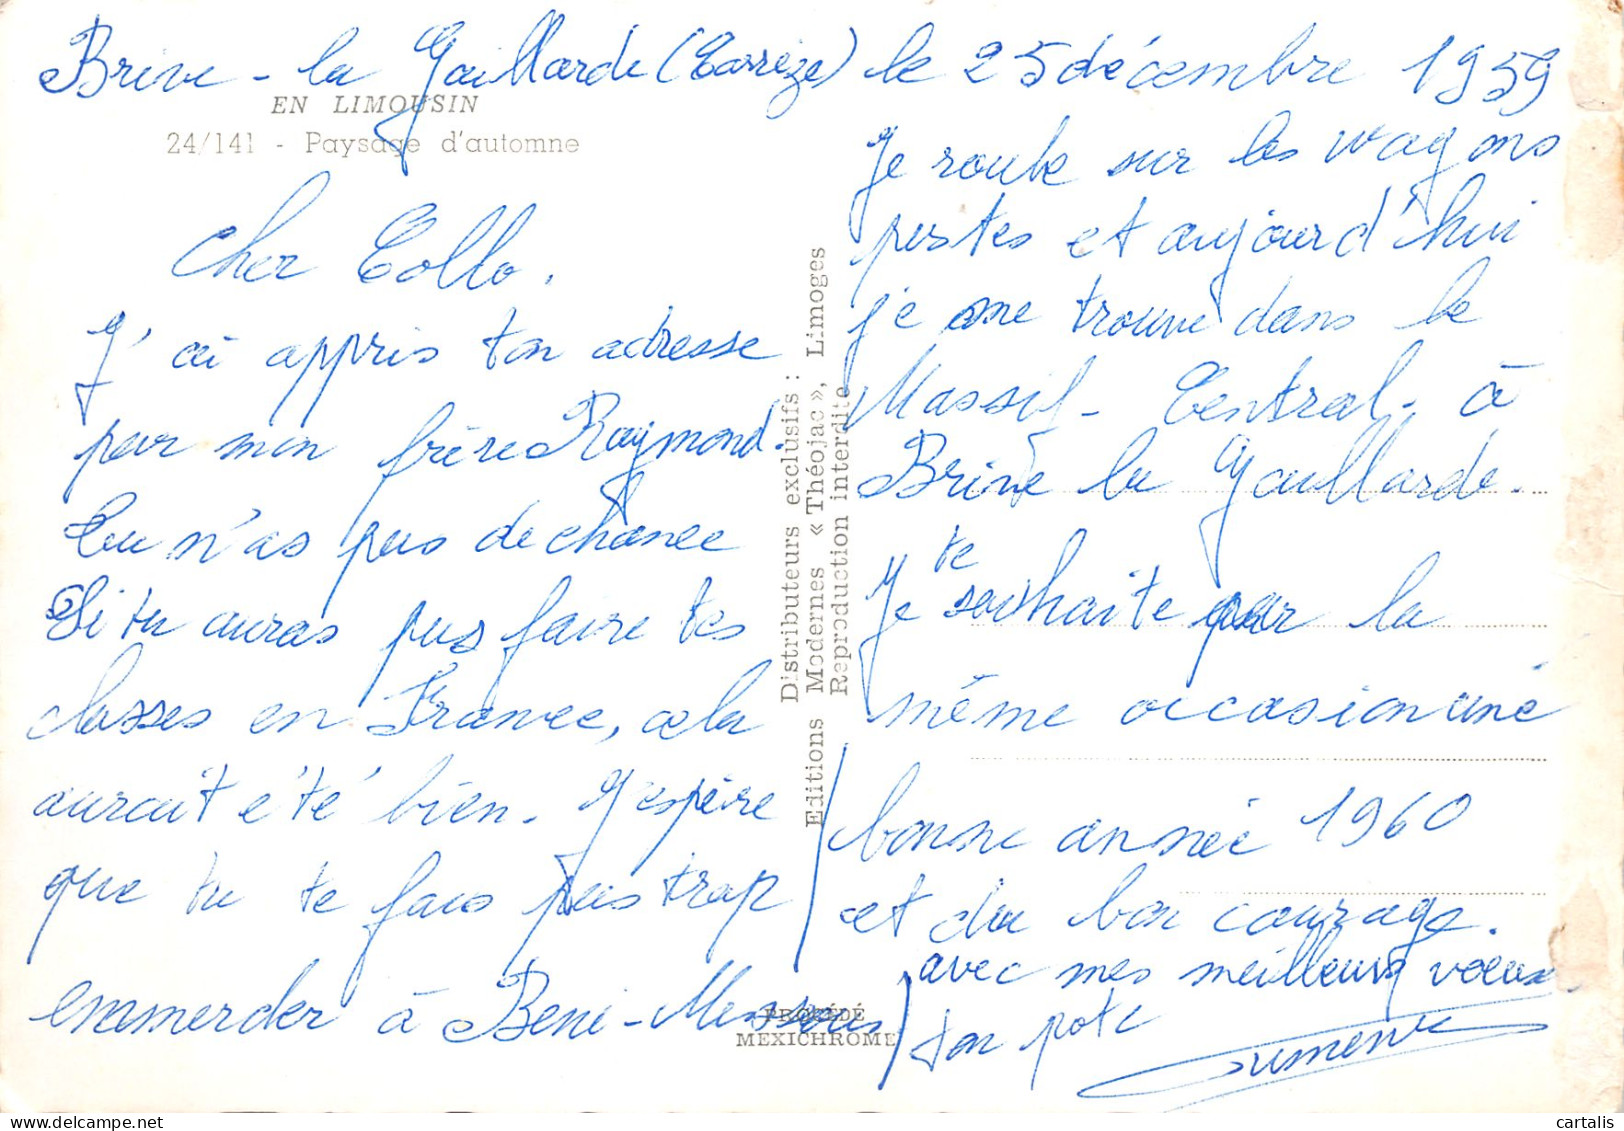 Brive - la Gaillarde (Corrèze) le 25 décembre 1959
EN LIMOUSIN
24/141 - Paysage d'automne
Cher Collo.
J'ai appris ton adresse
par mon frère Raymond.
Tu n'as pas de chance
Si tu auras pus faire tes
classes en France, cela
aurait été bien. J'espère
que tu te fais pas trop
emmerder à Beni-Messous
Distributeurs exclusifs :
Editions Modernes « Théojac », Limoges
Reproduction interdite
PROCÉDÉ
MEXICHROME
Je roule sur les wagons
postes et aujourd'hui
je me trouve dans le
Massif-Central, à
Brive la Gaillarde.
te
Je souhaite par la
même occasion une
bonne année 1960
et du bon courage.
avec mes meilleurs voeux
ton pote
cartalis.com